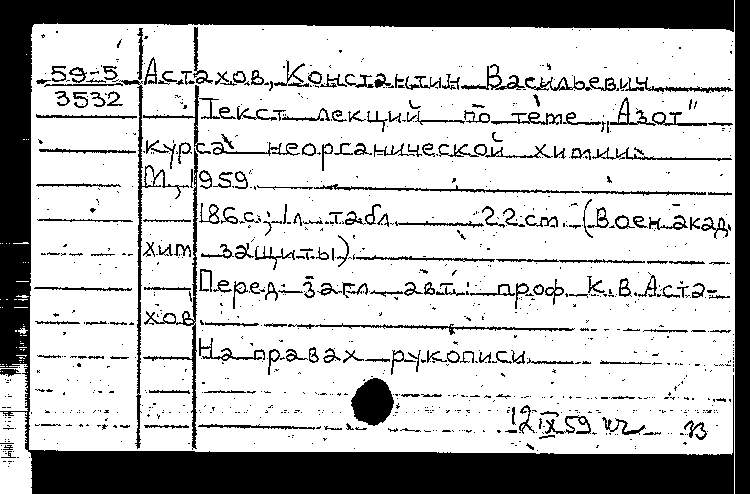 59-5 Астахов, Константин Васильевич
3532 Текст лекций по теме „Азот"
курса неорганической химии.
М., 1959.
186 с.; 1 л. табл. 22 cm. (Воен. акад.
хим. защиты)
Перед. загл. авт.: проф. К. В. Аста-
хов
На правах рукописи
12 IX 59